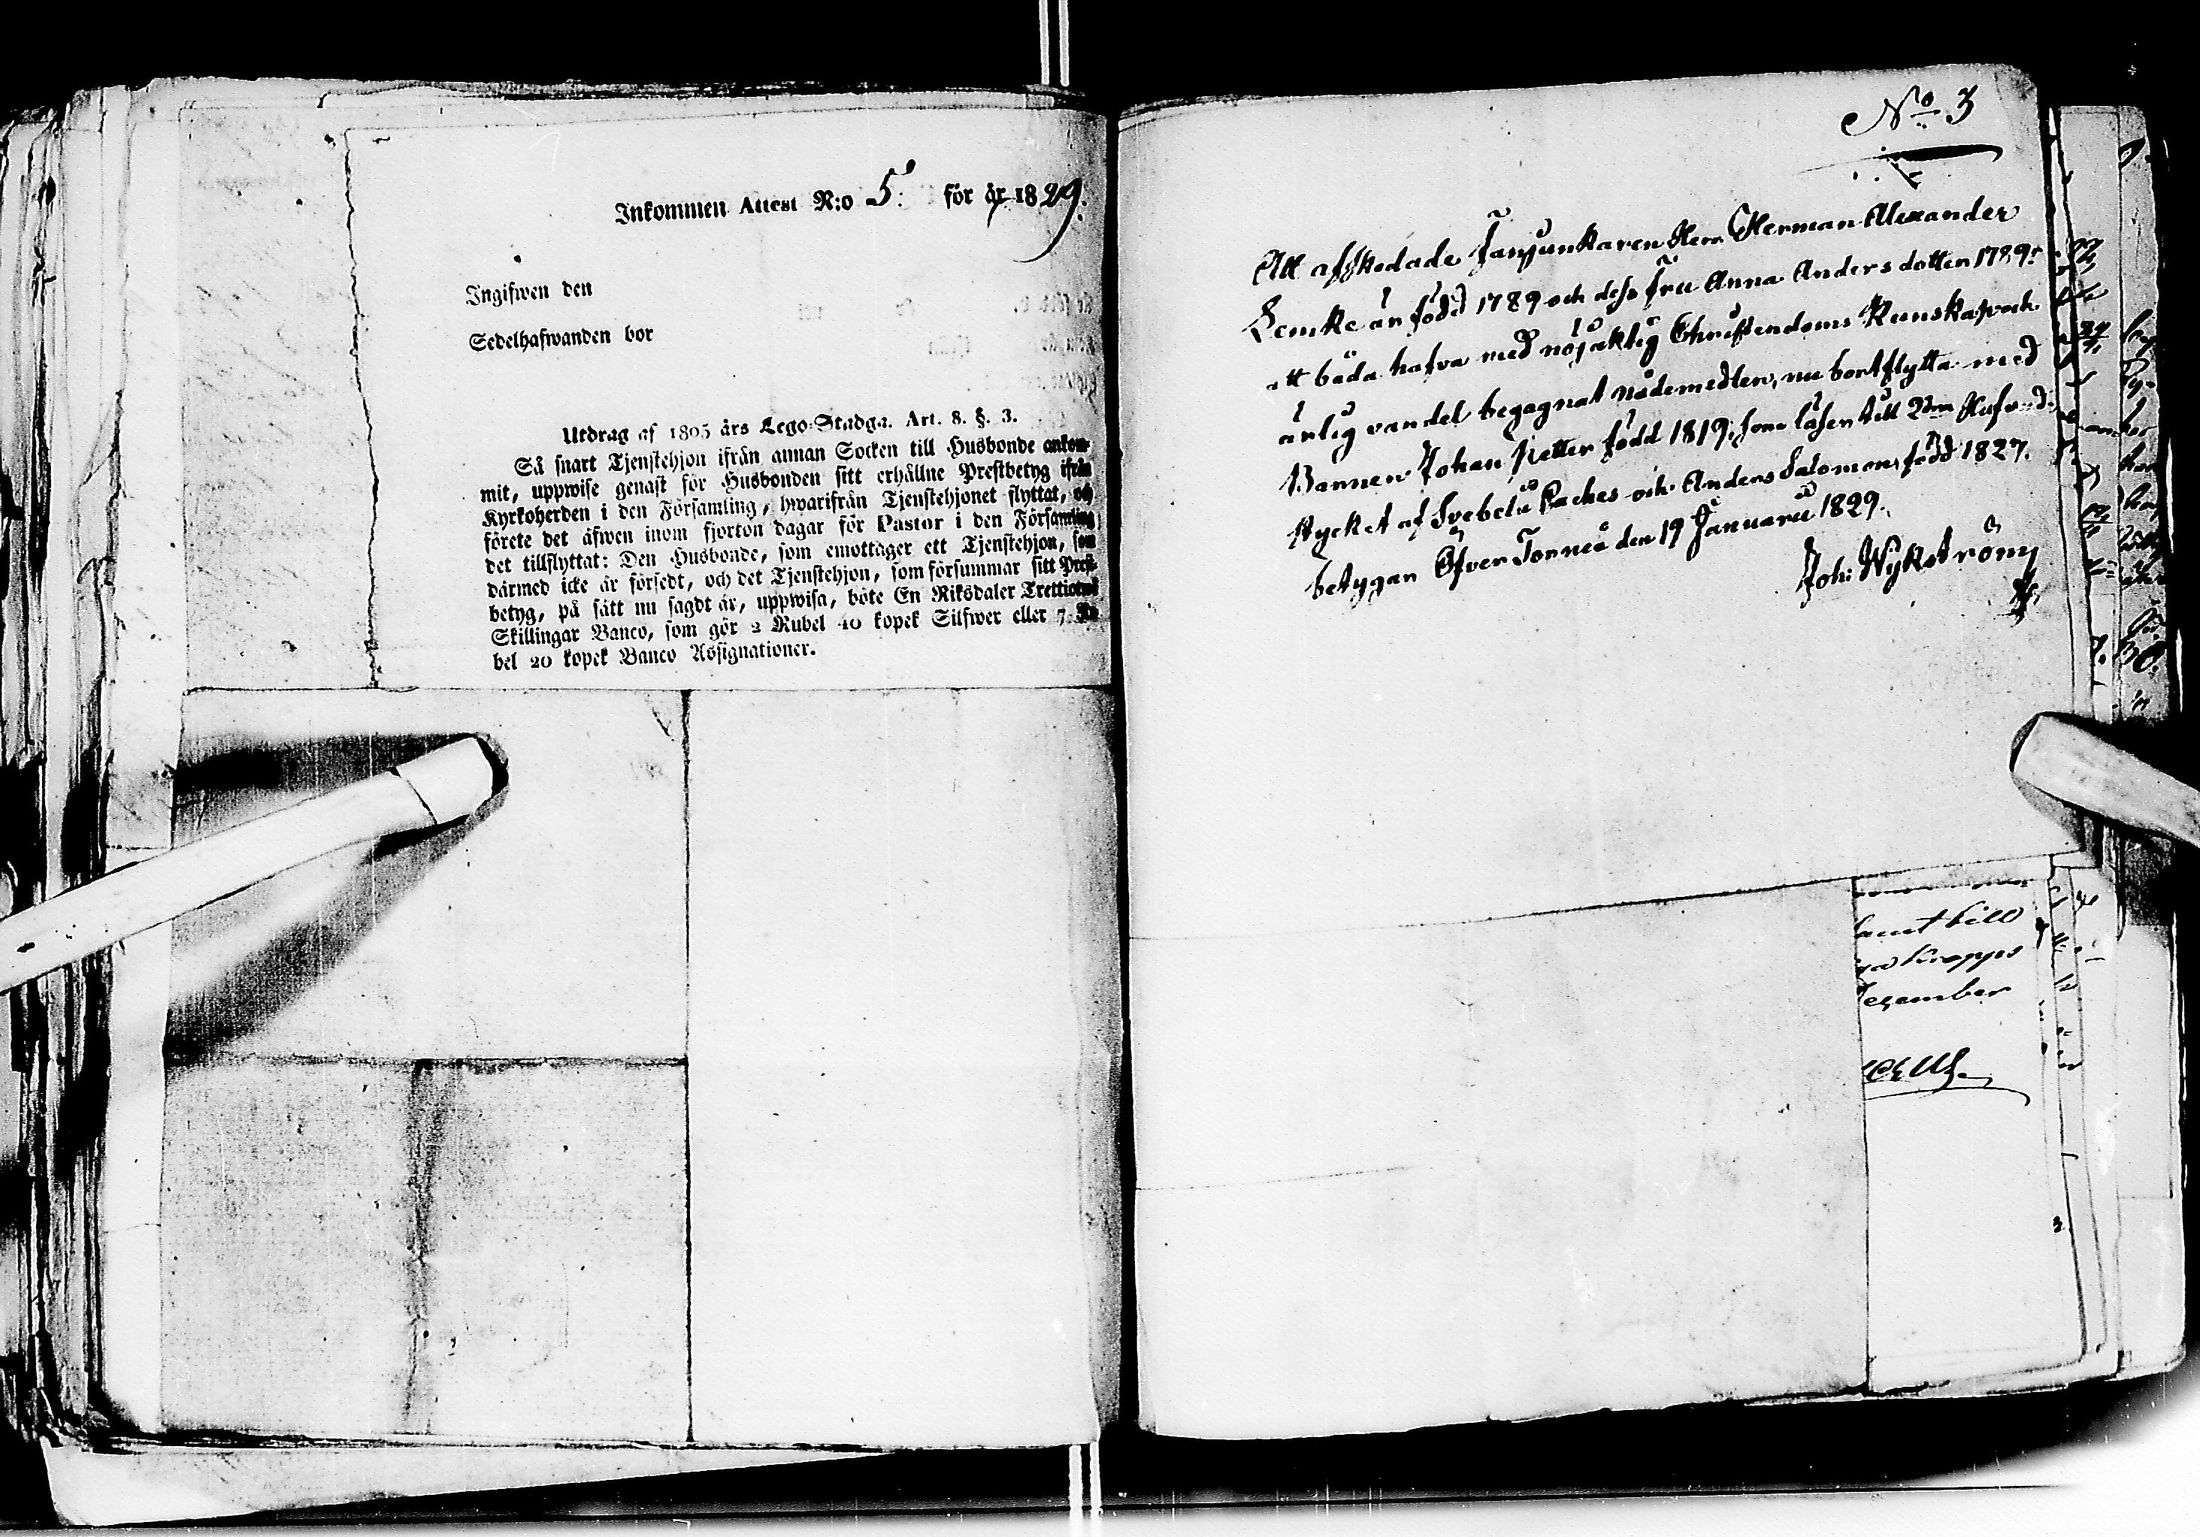 Inkommen Attest N:o 5. för år 1829.
Ingifwen den
Sedelhafwanden bor
Utdrag af 1805 års Lego-Stadga. Art. 8. §. 3.
Så snart Tjenstehjon ifrån annan Socken till Husbonde ankom-
mit, uppwise genast för Husbonden sitt erhållne Prestbetyg ifrån
Kyrkoherden i den Församling, hwarifrån Tjenstehjonet flyttat, och
förete det äfwen inom fjorton dagar för Pastor i den Församling
det tillflyttat: Den Husbonde, som emottager ett Tjenstehjon, som
därmed icke är försedt, och det Tjenstehjon, som försummar sitt Prest-
betyg, på sätt nu sagdt är, uppwisa, böte En Riksdaler Trettiotwå
Skillingar Banco, som gör 2 Rubel 40 kopek Silfwer eller 7 Ru-
bel 20 kopek Banco Assignationer.
No 3
Att afskedade Fanjunkaren Herr Herman Alexander
Lemke är född 1789 och dess fru Anna Anders dotter 1789.
att båda hafva med nöjaktig Christendoms Kunskap och
ärlig vandel begagnat nådemedlen, nu bortflytta med
Barnen Johan Petter född 1819, som läser till 2dra Hufvud-
stycket af Svebelii Kaches och Anders Salomon, född 1827.
betygar Öfver Torneå den 19 Januarii 1829.
Joh: Wykström
samt till
Krapps
December